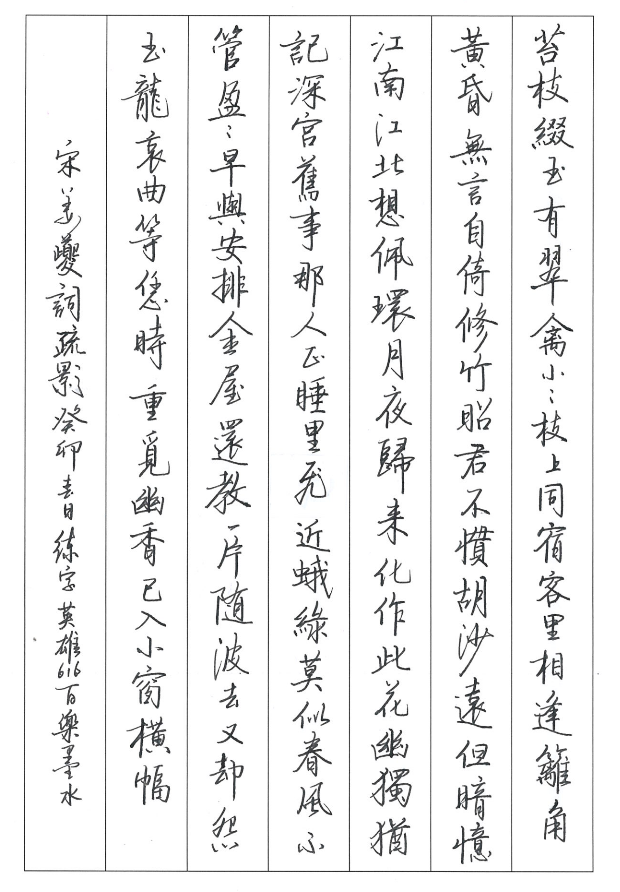 苔枝綴玉有翠禽小〻枝上同宿客里相逢籬角
黃昏無言自倚修竹昭君不慣胡沙遠但暗憶
江南江北想佩環月夜歸来化作此花幽獨猶
記深宫舊事那人正睡里飛近蛾綠莫似春風不
管盈〻早與安排金屋還教一片随波去又却怨
玉龍哀曲等恁時重覓幽香已入小窗橫幅
宋姜夔詞疏影癸卯春日练字英雄616百樂墨水